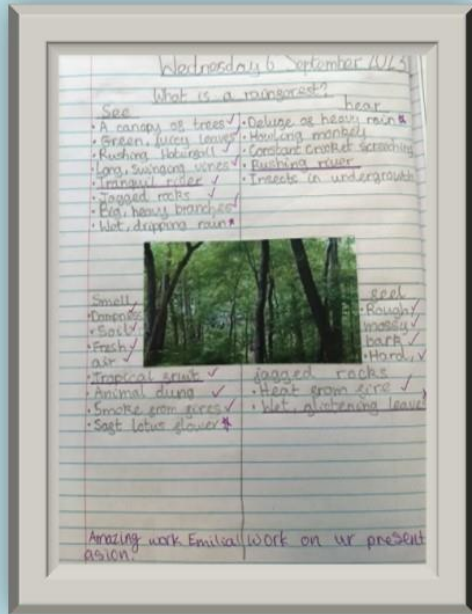 Wednesday 6 September 2023
What is a rainforest?
See
• A canopy of trees
• Green, furry leaves
• Rushing
Long, swinging vines
• Tranquil river
• Jagged rocks
• Big, heavy branches
• Wet, dripping rain
hear
• Deluge of heavy rain
• Howling monkey
• Constant
• Rushing river
• Insects in undergrowth
Smell
• Dampness
• Soil
• Fresh
air
• Tropical fruit
• Animal dung
• Smoke from fires
• Soft lotus flower
feel
• Rough
mossy
bark
• Hard,
jagged rocks
• Heat from fire
• Wet, glistening leaves
Amazing work Emilea! Work on ur present
asion.